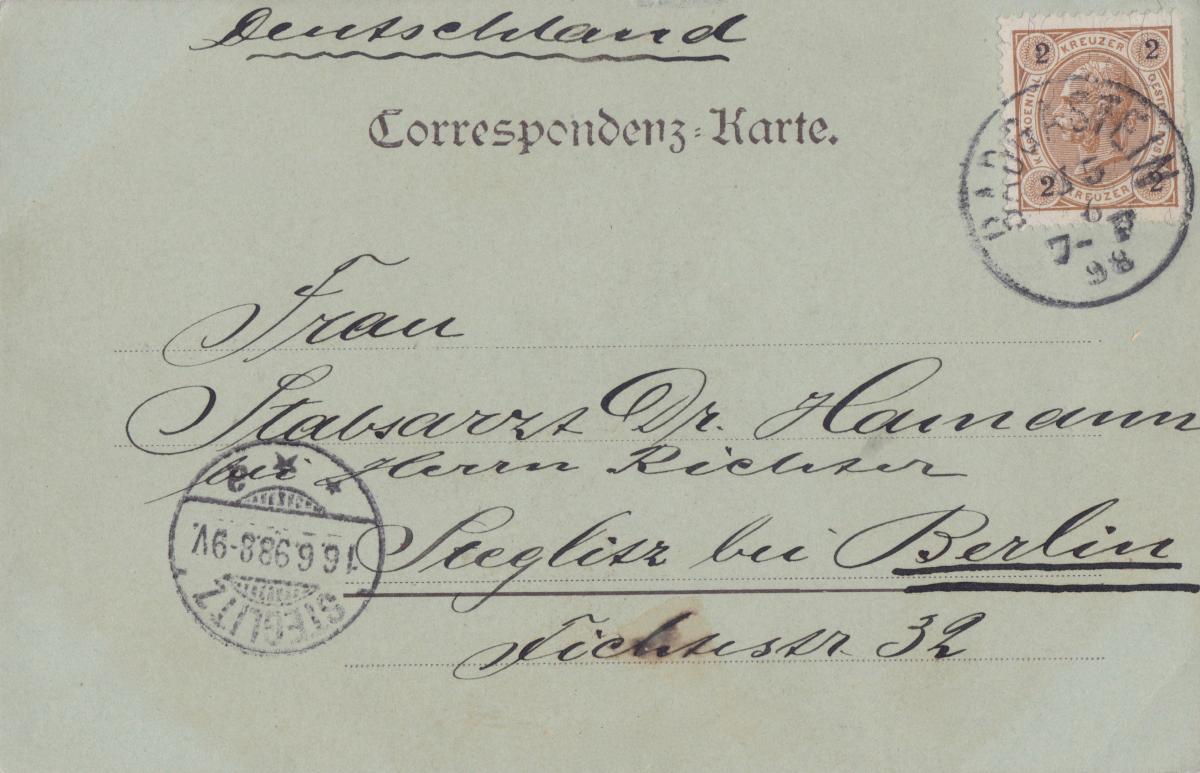 Deutschland
Correspondenz-Karte.
2 KREUZER 2
2 KREUZER 2
BAD GASTEIN
15
6
7-P
98
Frau
Stabsarzt Dr. Hamann
bei Herrn Richter
Steglitz bei Berlin
Fichtestr. 32
STEGLITZ
16.6.98.8-9V.
* 2 *